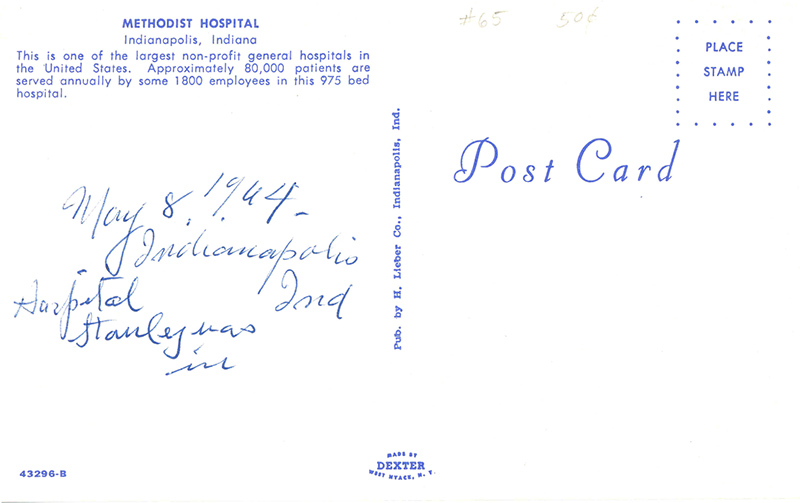 METHODIST HOSPITAL
Indianapolis, Indiana
This is one of the largest non-profit general hospitals in
the United States. Approximately 80,000 patients are
served annually by some 1800 employees in this 975 bed
hospital.
May 8, 1964.
Indianapolis
Ind
Hospital
Stanley was
in
43296-B
Pub. by H. Lieber Co., Indianapolis, Ind.
MADE BY
DEXTER
WEST NYACK, N. Y.
#65 50¢
PLACE
STAMP
HERE
Post Card